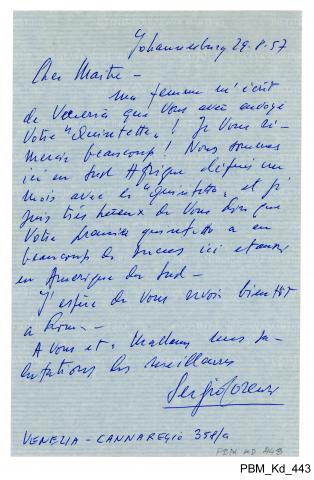 Johannesburg 29.8.57
Cher Maitre -
ma femme m'écrit
de Venezia que Vous avez envoyé
Votre "Quintette"! Je Vous re-
mercie beaucoup! Nous sommes
ici en Sud Afrique depuis un
mois avec le "Quintetto" et je
suis très heureux de Vous dire que
Votre premier quintetto a eu
beaucoup de succes ici et aussi
en Amerique du Sud -
J'espère de Vous revoir bientôt
a
A Vous et a Madame mes sa-
lutations les meilleures
Sergio Lorenzi
VENEZIA - CANNAREGIO 358/a
PBM KD 443
PBM_Kd_443